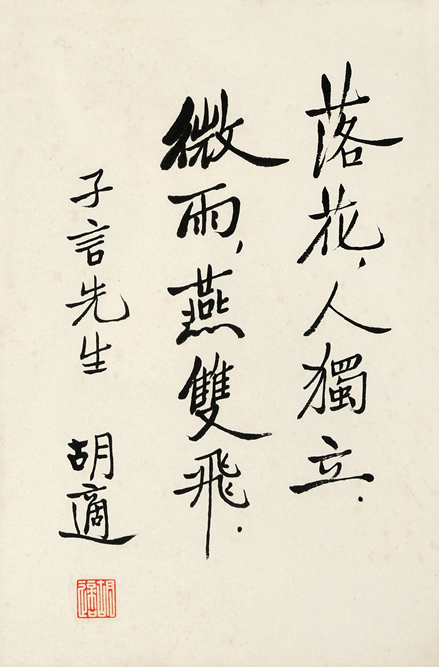 落花，人獨立．
微雨，燕雙飛．
子言先生 胡適
胡適